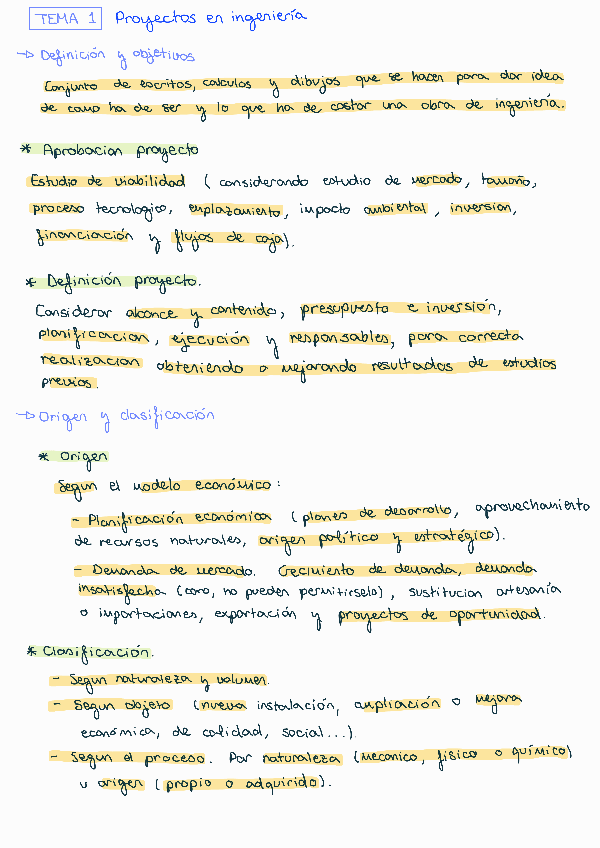 TEMA 1 Proyectos en ingeniería
→ Definición y objetivos
Conjunto de escritos, calculos y dibujos que se hacen para dar idea
de como ha de ser y lo que ha de costar una obra de ingeniería.
* Aprobacion proyecto
Estudio de viabilidad ( considerando estudio de mercado, tamaño,
proceso tecnologico, emplazamiento, impacto ambiental, inversion,
financiación y flujos de caja).
* Definición proyecto.
Considerar alcance y contenido, presupuesto e inversión,
planificacion, ejecución y responsables, para correcta
realizacion obteniendo o mejorando resultados de estudios
previos.
→ Origen y clasificación
* Origen
Segun el modelo económico:
- Planificación económica ( planes de desarrollo, aprovechamiento
de recursos naturales, origen político y estratégico).
- Demanda de mercado. Crecimiento de demanda, demanda
insatisfecha (caro, no pueden permitirselo), sustitucion artesanía
o importaciones, exportación y proyectos de oportunidad.
* Clasificación.
- Segun naturaleza y volumen.
- Segun objeto (nueva instalación, ampliación o mejora
económica, de calidad, social...).
- Segun el proceso. Por naturaleza (mecanico, físico o químico)
u origen ( propio o adquirido).